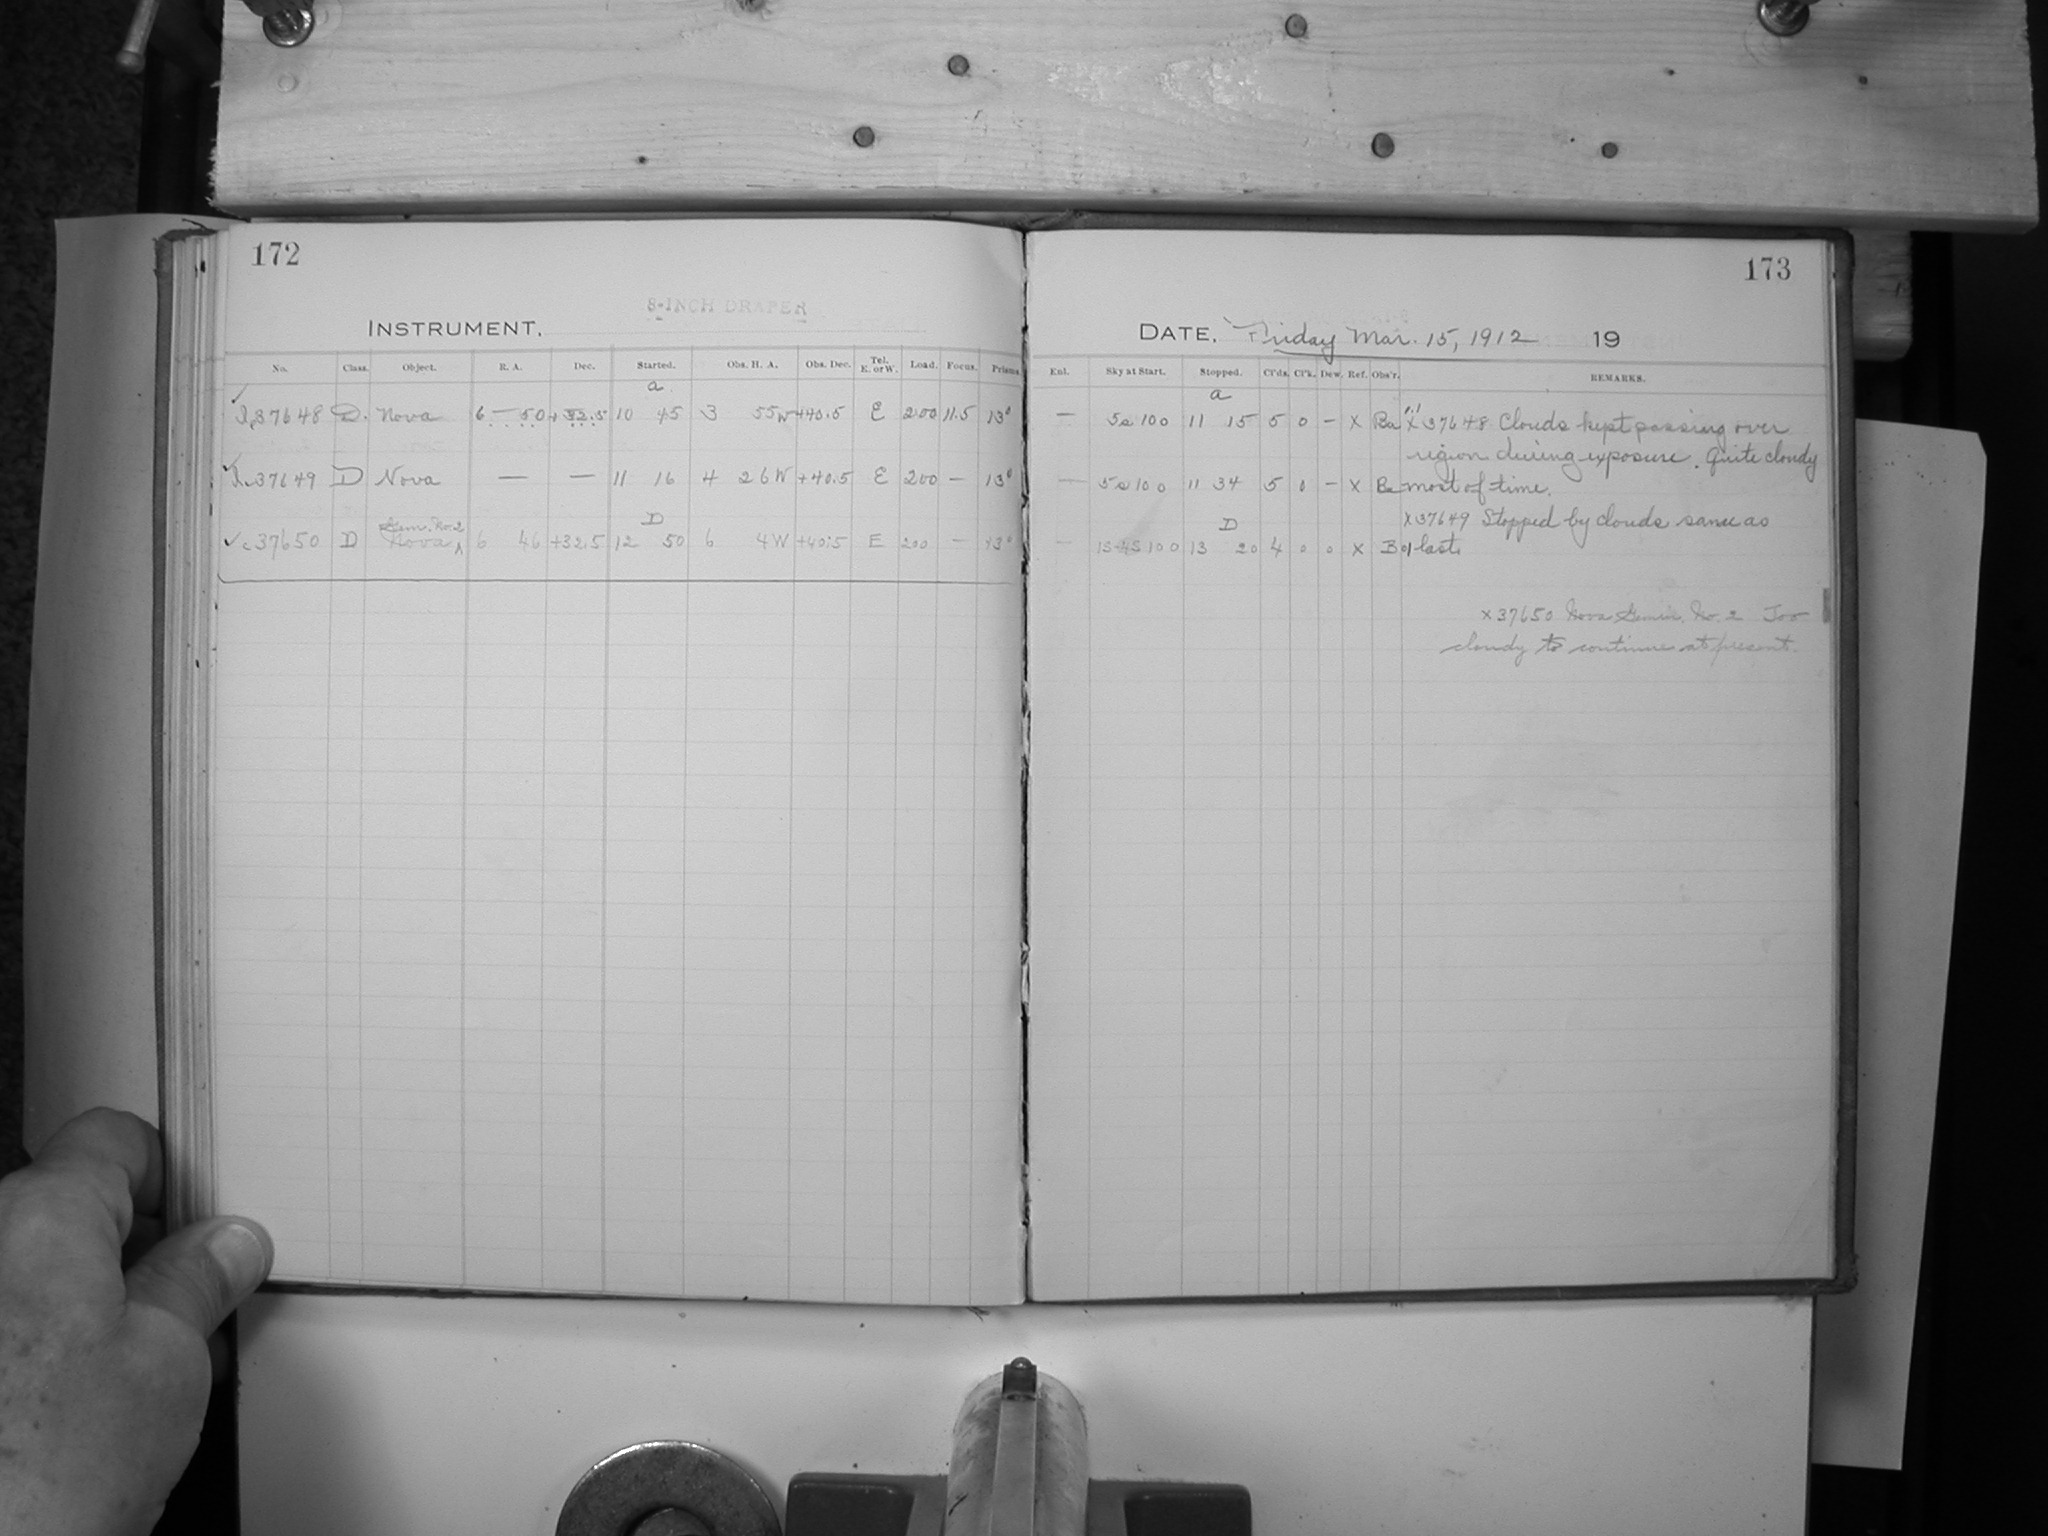 172
8-INCH DRAPER
INSTRUMENT.
No. Class. Object. R. A. Dec. Started. Obs. H. A. Obs. Dec. Tel. E. or W. Load. Focus. Prisms.
a
37648 D. Nova 6 — 50 + 32.5 10 45 3 55 W +40.5 E 200 11.5 13°
37649 D Nova — — 11 16 4 26 W +40.5 E 200 — 13°
Gem. No. 2 D
37650 D Nova 6 46 +32.5 12 50 6 4 W +40.5 E 200 — 13°
173
DATE. Friday Mar. 15, 1912 19
Enl. Sky at Start. Stopped. Cl'ds. Cl'k. Dew. Ref. Obs'r. REMARKS.
a
— 5a 100 11 15 5 0 — X Ba X 37648 Clouds kept passing over
region during exposure. Quite cloudy
— 5a 100 11 34 5 0 — X Ba most of time.
D X 37649 Stopped by clouds same as
— 100 13 20 4 0 0 X B last.
X 37650 Nova Gemin. No. 2 Too
cloudy to continue at present.